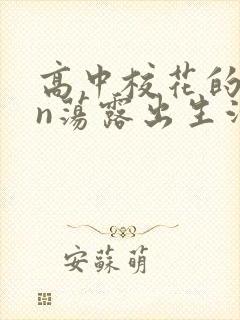 高中校花的
n荡露出生活
安蘇萌